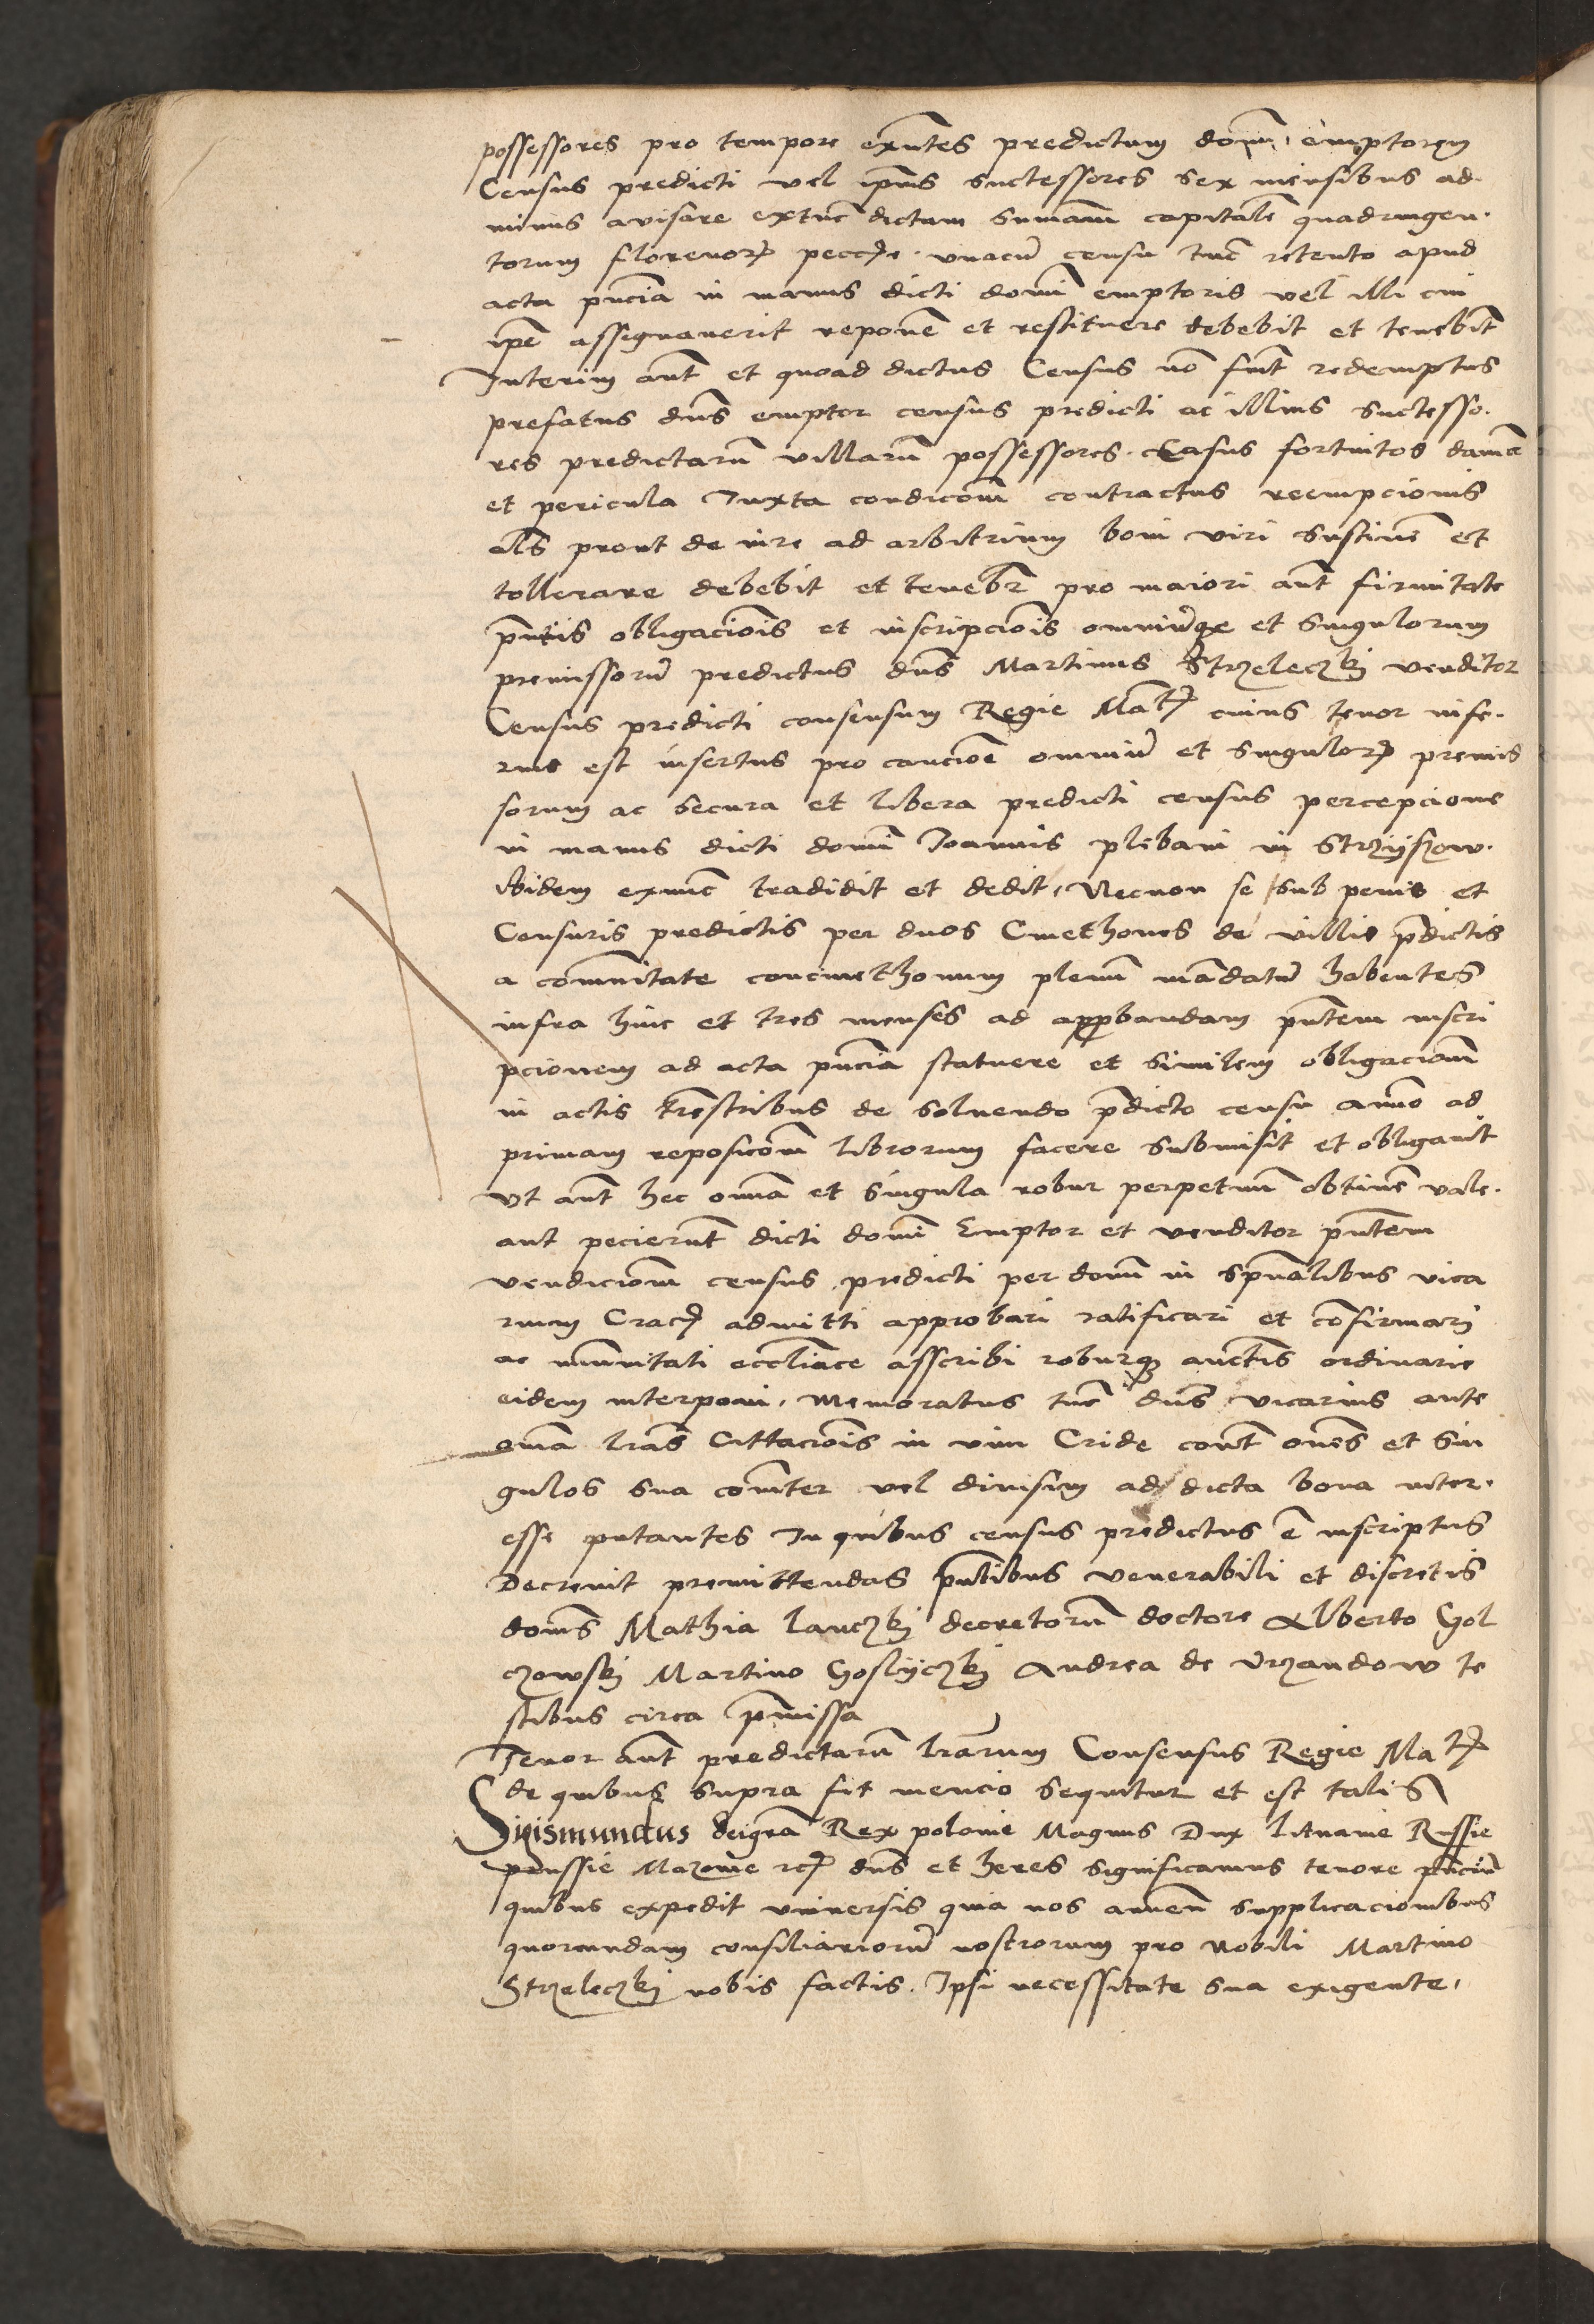 possessores pro tempore exntes predictum dom emptorem
Census predicti vel ipius successores sex mensibus ad
minus avisare extunc dictam sumam capitale quadringen
torum florenor pecc unacu censu tunc retento apud
acta pncia in manus dicti domi emptoris vel illi cui
ipe assignaverit repone et restituere debebit et tenebit
Interim aut et quoad dictus Census no fuit redemptus
prefatus dns emptor census predicti ac illius successo
res predictaru villaru possessores Casus fortuitos damna
et pericula Iuxta condicom contractus reempcionis
als prout de iure ad arbitrium boni viri sustine et
tollerare debebit et tenebr pro maiori aut firmitate
pntis obligaciois et inscripciois omniuqe et singulorum
premissoru predictus dns Martinus Strzeleczkj venditor
Census predicti consensum Regie Mat cuius tenor infe
rius est insertus pro caucioe omniu et singulor premis
sorum ac secura et libera predicti census percepcione
in manus dicti domi Joannis plebani in Strzijszow
ibidem exnunc tradidit et dedit, Necnon se sub penis et
Censuris predictis per duos Cmethones de villis pdictis
a comunitate concmethonum plenu mandatu habentes
infra hinc et tres menses ad approbandam pntem inscri
pcionem ad acta pncia statuere et similem obligaciom
in actis terrestribus de solvendo pdicto censu Annuo ad
primam reposicom librorum facere submisit et obligavit
Vt aut hec omia et singula robur perpetuu obtine vale
ant pecierut dicti domi Emptor et venditor pntem
vendiciom census predicti per dom in spualibus vica
rium Crac admitti approbari ratificari et confirmari
ac immunitati eccliasce asscribi roburq auctis ordinarie
eidem interponi, Memoratus tunc dns vicarius ante
omia lras Cittaciois in vim Cride cont omes et sin
gulos sua comiter vel divisim ad dicta bona inter
esse putantes In quibus census predictus e inscriptus
Decrevit premittendas pntibus venerabili et discretis
domis Mathia lanczkj decretoru doctore Alberto Gol
czowskj Martino Goslijczkj Andrea de Vrzandow te
stibus circa pmissa
Tenor aut predictaru lrarum Consensus Regie Mat
de quibus supra fit mencio sequitur et est talis
Sigismundus deigra Rex polonie Magnus Dux lituanie Russie
prussie Mazovie zc dns et heres significamus tenore pnciu
quibus expedit universis quia nos annuen supplicacionibus
quorundam consiliarioru nostrorum pro Nobili Martino
Strzeleczkj nobis factis. Ipsi necessitate sua exigente,